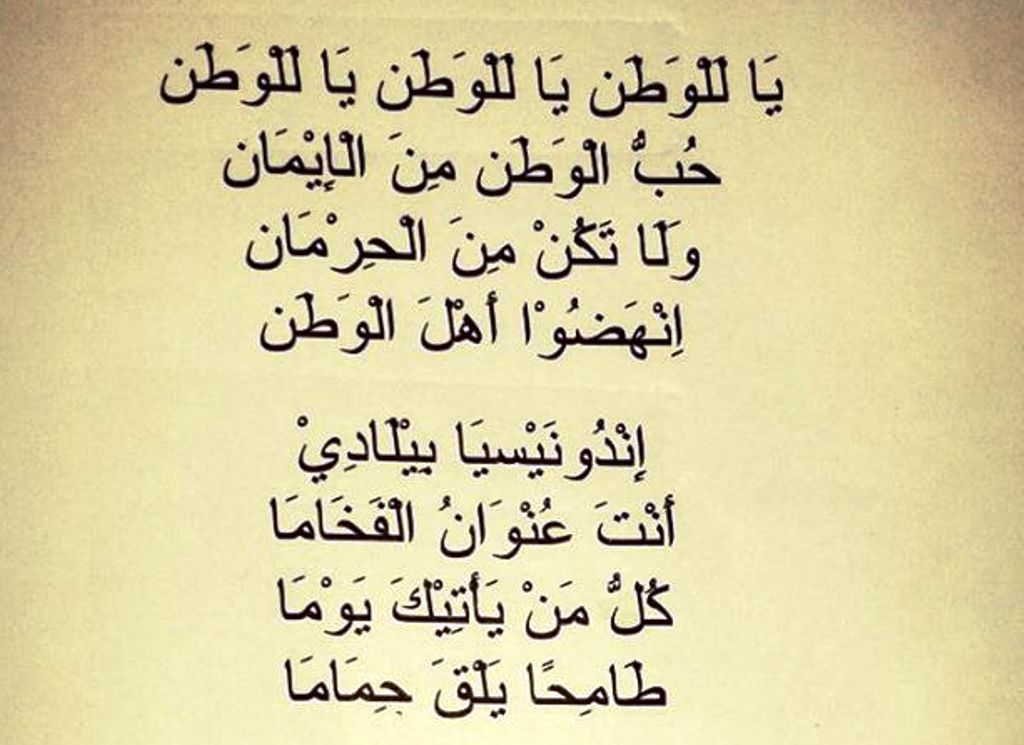 يَا لَلْوَطَن يَا لَلْوَطَن يَا لَلْوَطَن
حُبُّ الْوَطَن مِنَ الْإِيْمَان
وَلَا تَكُنْ مِنَ الْحِرْمَان
اِنْهَضُوْا أَهْلَ الْوَطَن
إِنْدُونَيْسيَا بِيْلَادِيْ
أَنْتَ عُنْوَانُ الْفَخَامَا
كُلُّ مَنْ يَأْتِيْكَ يَوْمَا
طَامِحًا يَلْقَ حِمَامَا